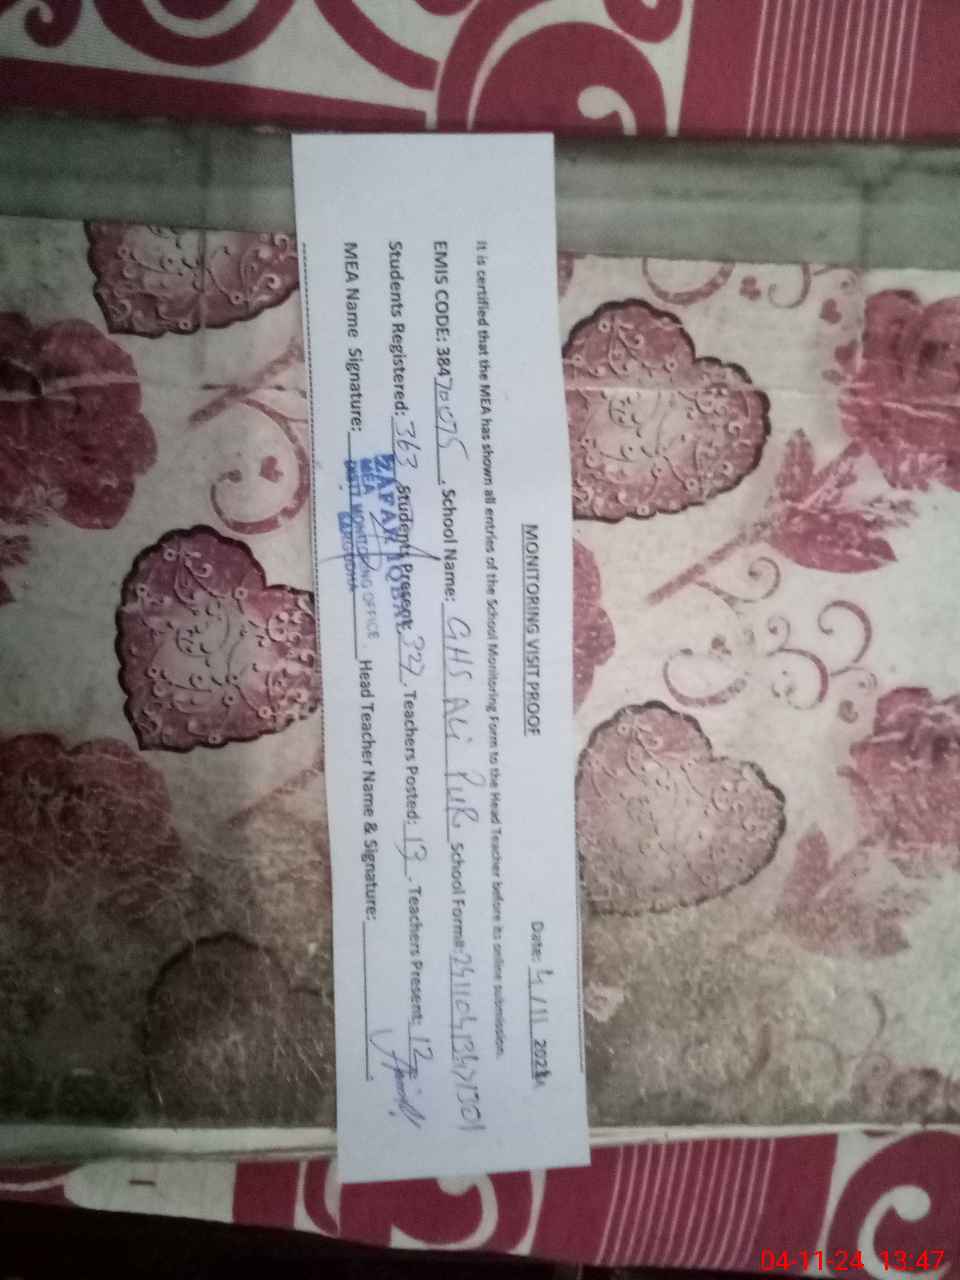 MONITORING VISIT PROOF
Date: 4/11 2024
It is certified that the MEA has shown all entries of the School Monitoring Form to the Head Teacher before its online submission.
EMIS CODE: 38470075, School Name: GHS ALi PUR School Form#: 24110413471301
Students Registered: 363, Students Present: 327, Teachers Posted: 13, Teachers Present: 12
MEA Name Signature: Head Teacher Name & Signature:
ZAFAR IQBAL
MEA
DISTT MONITORING OFFICE
SARGODHA
04-11-24 13:47